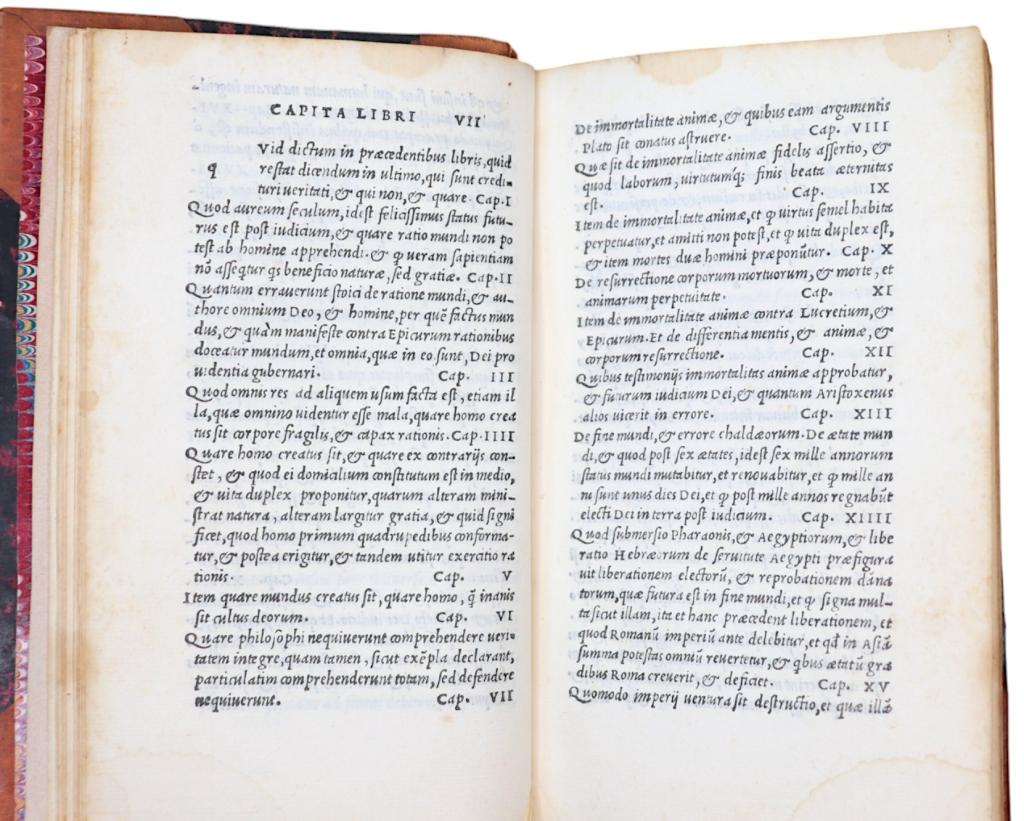 CAPITA LIBRI VII
q Vid dictum in præcedentibus libris, quid
restat dicendum in ultimo, qui sunt credi-
turi ueritati, & qui non, & quare. Cap. I
Quod aureum seculum, idest felicissimus status futu-
rus est post iudicium, & quare ratio mundi non po
test ab homine apprehendi. & ꝙ ueram sapientiam
nõ asseqtur qs beneficio naturæ, sed gratiæ. Cap. II
Quantum errauerunt stoici de ratione mundi, & au-
thore omnium Deo, & homine, per quẽ factus mun
dus, & quàm manifeste contra Epicurum rationibus
doceatur mundum, et omnia, quæ in eo sunt, Dei pro
uidentia gubernari. Cap. III
Quod omnus res ad aliquem usum facta est, etiam il
la, quæ omnino uidentur esse mala, quare homo crea
tus sit corpore fragilis, & capax rationis. Cap. IIII
Quare homo creatus sit, & quare ex contrarijs con-
stet, & quod ei domicalium constitutum est in medio,
& uita duplex proponitur, quarum alteram mini-
strat natura, alteram largitur gratia, & quid signi
ficet, quod homo primum quadrupedibus conforma-
tur, & postea erigitur, & tandem utitur exercitio ra
tionis. Cap. V
Item quare mundus creatus sit, quare homo, q̃ inanis
sit cultus deorum. Cap. VI
Quare philosophi nequiuerunt comprehendere ueri-
tatem integre, quam tamen, sicut exẽpla declarant,
particulatim comprehenderunt totam, sed defendere
nequiuerunt. Cap. VII
De immortalitate animæ, & quibus eam argumentis
Plato sit conatus astruere. Cap. VIII
Quæ sit de immortalitate animæ fidelis assertio, &
quod laborum, uirtutumq; finis beata æternitas
est. Cap. IX
Item de immortalitate animæ, et ꝙ uirtus semel habita
perpetuatur, et amitti non potest, et ꝙ uita duplex est,
& item mortes duæ homini præponũtur. Cap. X
De resurrectione corporum mortuorum, & morte, et
animarum perpetuitate. Cap. XI
Item de immortalitate animæ contra Lucretium, &
Epicurum. Et de differentia mentis, & animæ, &
corporum resurrectione. Cap. XII
Quibus testimonijs immortalitas animæ approbatur,
& futurum iudicium Dei, & quantum Aristoxenus
alios uicerit in errore. Cap. XIII
De fine mundi, & errore chaldæorum. De ætate mun
di, & quod post sex ætates, idest sex mille annorum
status mundi mutabitur, et renouabitur, et ꝙ mille an
ni sunt unus dies Dei, et ꝙ post mille annos regnabũt
electi Dei in terra post iudicium. Cap. XIIII
Quod submersio Pharaonis, & Aegyptiorum, & libe
ratio Hebræorum de seruitute Aegypti præfigura
uit liberationem electorũ, & reprobationem dãna
torum, quæ futura est in fine mundi, et ꝙ signa mul-
ta sicut illam, ita et hanc præcedent liberationem, et
quod Romanũ imperiũ ante delebitur, et qđ in Asiã
summa potestas omniũ reuertetur, & qbus ætatũ gra
dibus Roma creuerit, & deficiet. Cap. XV
Quomodo imperij uentura sit destructio, et quæ illã